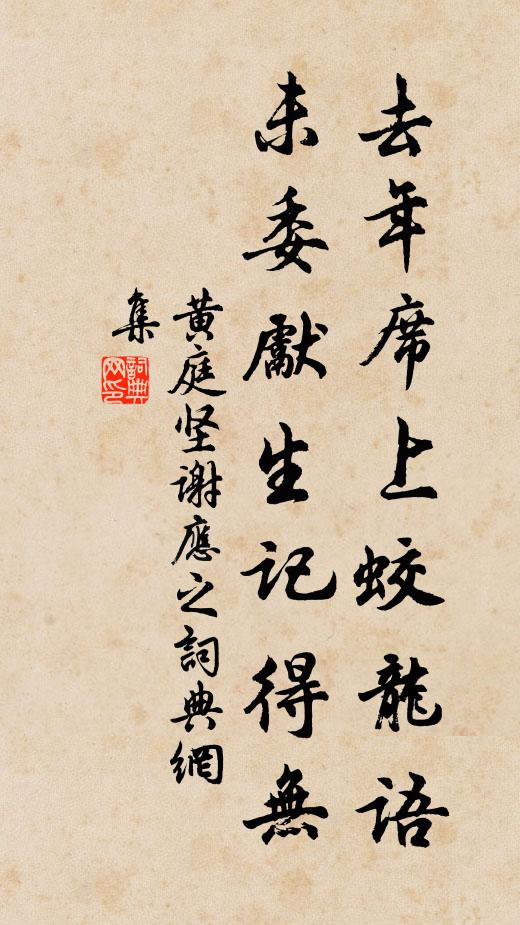 去年席上蛟龍語
未委獻生記得無
黄庭坚谢應之詞典網
集
詞典
网印